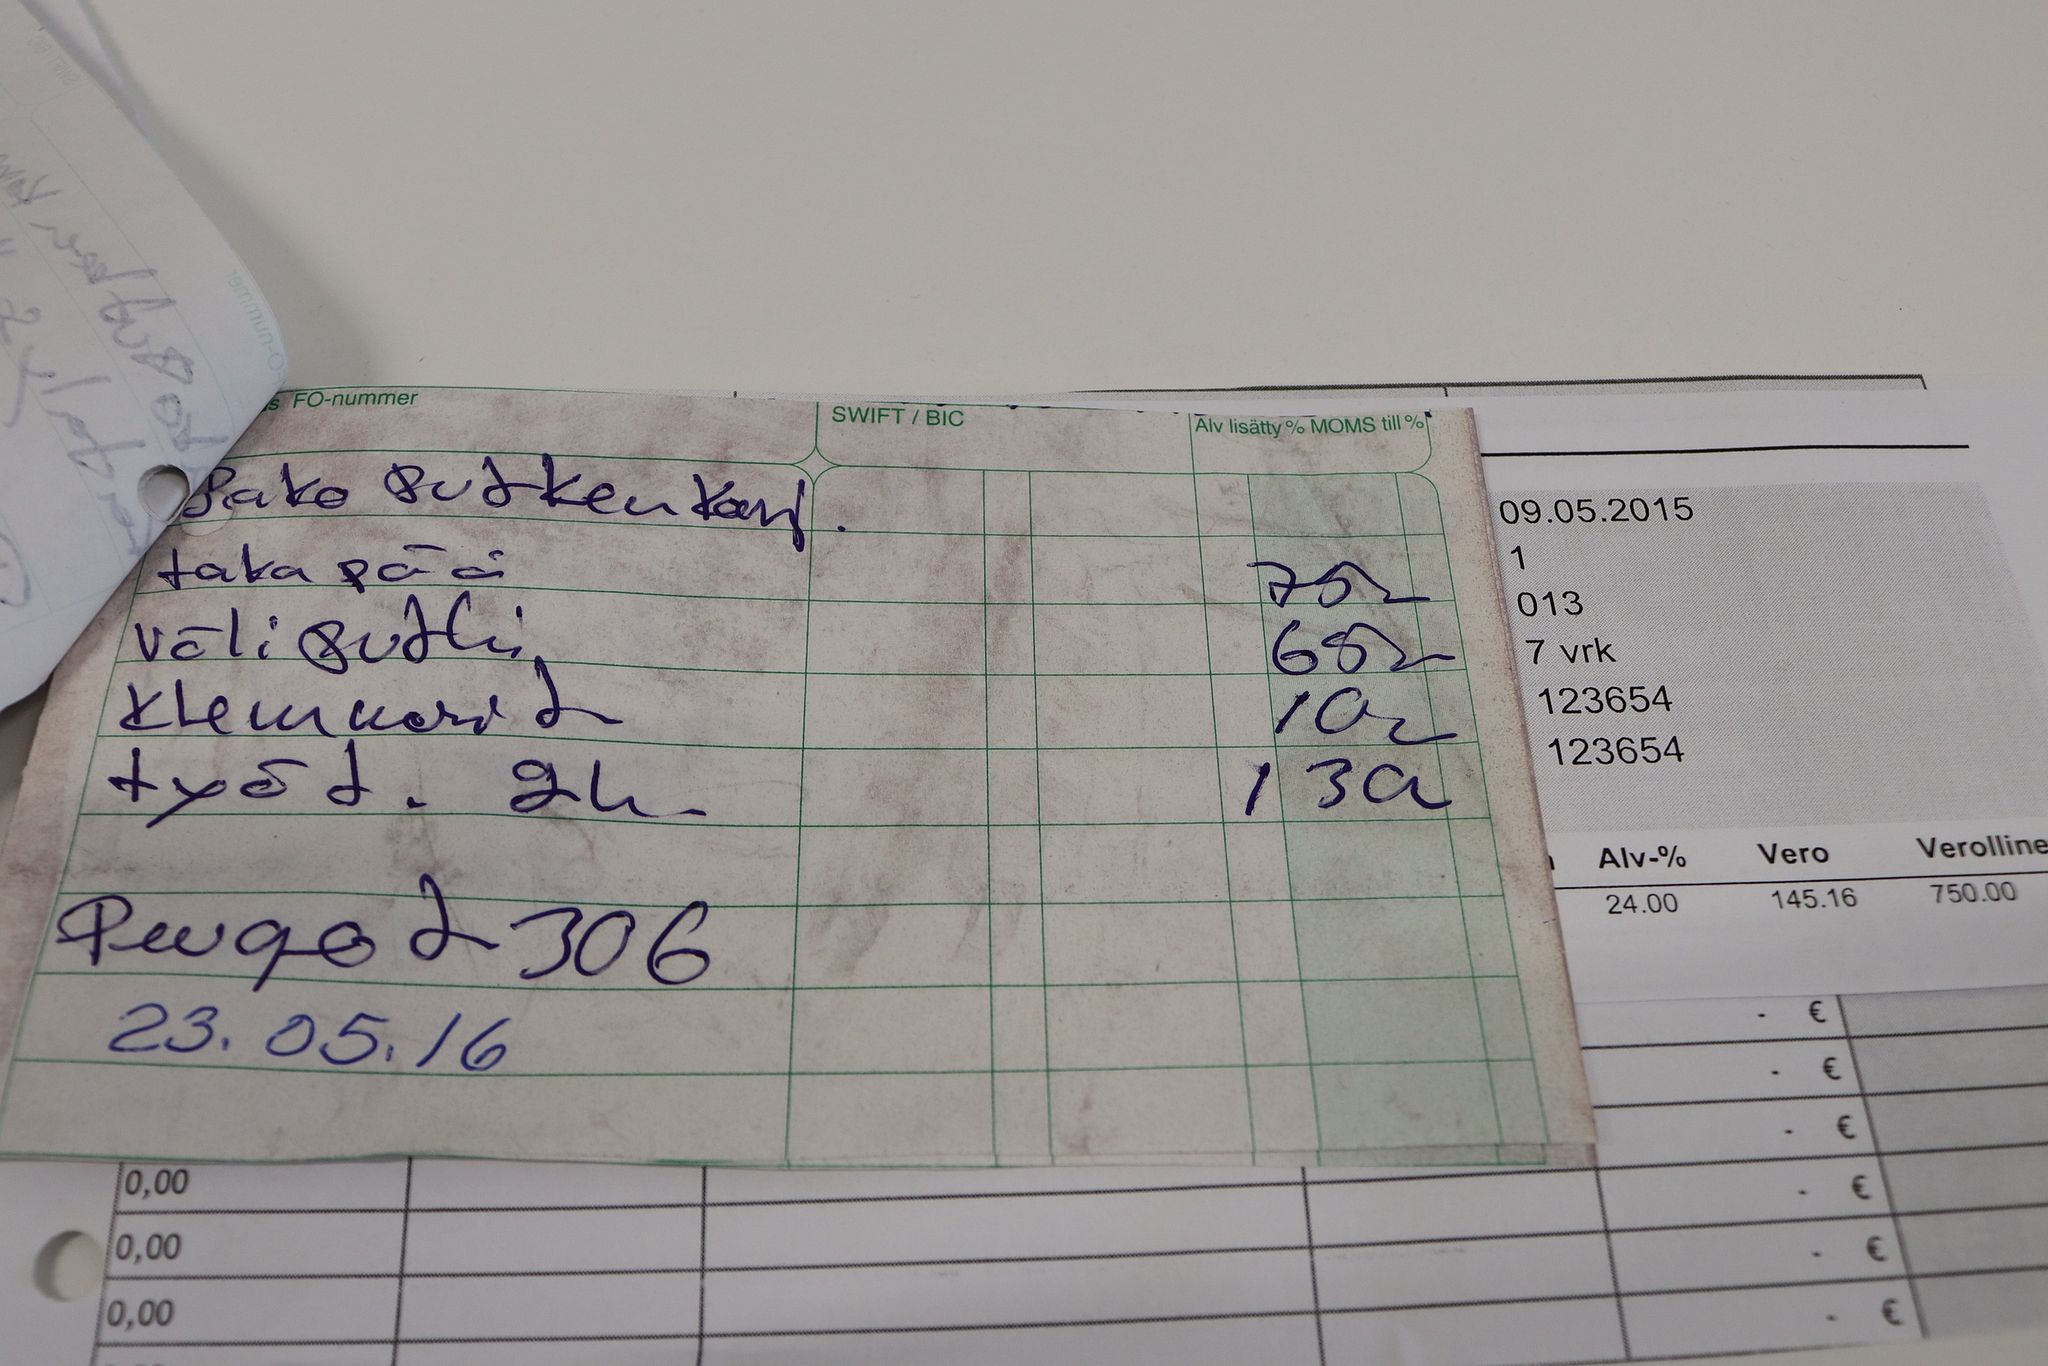 FO-nummer
SWIFT / BIC
Alv lisätty % MOMS till %
Pako putken korj.
takapää 75
väli putki 65
klemmarit 10
työt. 2h. 130
Peugot 306
23.05.16
09.05.2015
1
013
7 vrk
123654
123654
Alv-% Vero Verolline
24.00 145.16 750.00
- €
- €
- €
0,00 - €
0,00 - €
0,00 - €